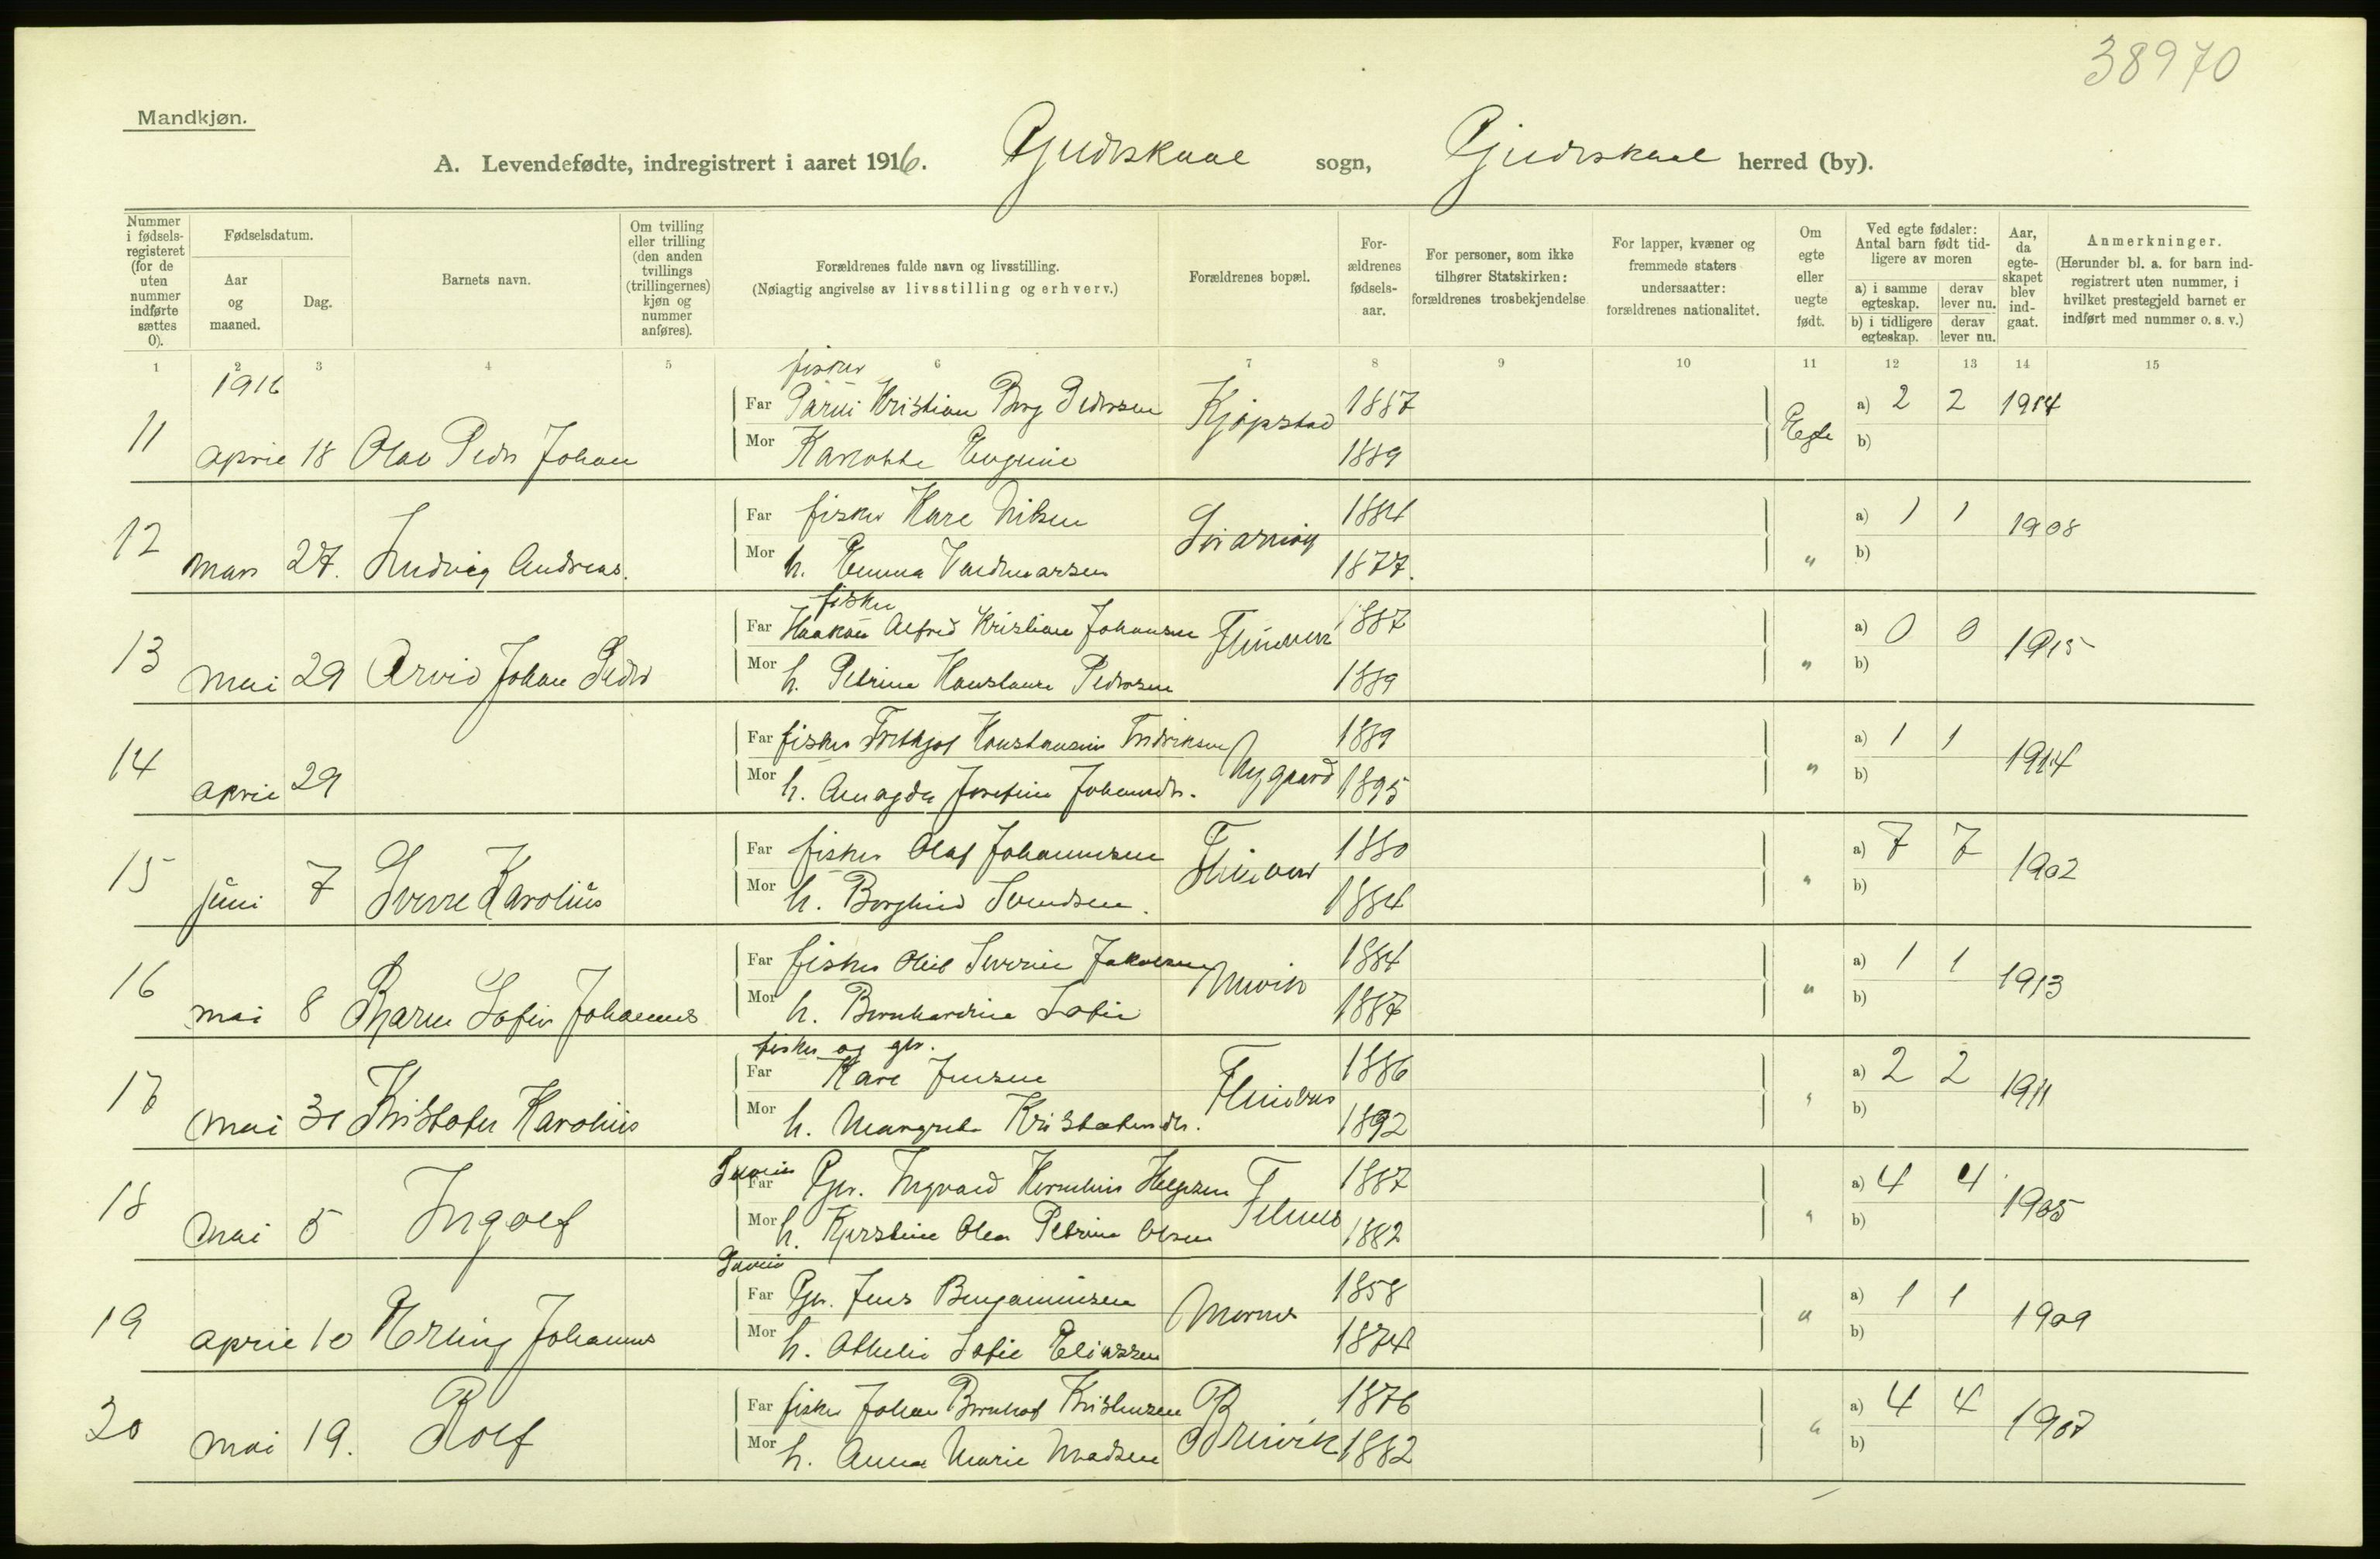 38970
Mandkjøn.
A. Levendefødte, indregistrert i aaret 1916. Gildeskaal sogn, Gildeskaal herred (by).
Nummer i fødselsregisteret (for de uten nummer indførte sættes 0).
Fødselsdatum.
Aar og maaned.
Dag.
Barnets navn.
Om tvilling eller trilling (den anden tvillings (trillingernes) kjøn og nummer anføres).
Forældrenes fulde navn og livsstilling.
(Nøiagtig angivelse av livsstilling og erhverv.)
Forældrenes bopæl.
Forældrenes fødselsaar.
For personer, som ikke tilhører Statskirken: forældrenes trosbekjendelse
For lapper, kvæner og fremmede staters undersaatter: forældrenes nationalitet.
Om egte eller uegte født.
Ved egte fødsler: Antal barn født tidligere av moren
a) i samme egteskap. derav lever nu.
b) i tidligere egteskap. derav lever nu.
Aar, da egteskapet blev indgaat.
Anmerkninger.
(Herunder bl. a. for barn indregistrert uten nummer, i hvilket prestegjeld barnet er indført med nummer o. s. v.)
1 2 3 4 5 6 7 8 9 10 11 12 13 14 15
1916
fisker
Far Kristian Berg Pedersen Kjøpstad 1887 a) 2 2 1914
11 april 18 Olav Peder Johan Mor Eugenie 1889 Egte b)
Far fisker Kare Nilsen 1884 a) 1 1 1908
12 mars 27. Ludvig Andreas. Mor h. Emma Valdmarsen 1877. " b)
fisker
Far Haakon Alfred Kristian Johansen 1887 a) 0 0 1915
13 mai 29 Arvid Johan Peder Mor h. Petrine Konstanse Pedersen 1889 " b)
Far fisker Frithjof Konstansius Fredriksen Nygaard 1889 a) 1 1 1914
14 april 29 Mor h. Amagda Josefine Johansdr. 1895 " b)
Far fisker Olaf Johannesen 1880 a) 7 7 1902
15 juni 7 Sverre Karolius Mor h. Borghild Svendsen. 1884 " b)
Far fisker Severin Jakobsen 1884 a) 1 1 1913
16 mai 8 Sofus Johannes Mor h. Bernhardine Sofie 1887 " b)
fisker og gbr.
Far Kare Jensen 1886 a) 2 2 1911
17 mai 31 Kristofer Karolius Mor h. Margrete Kristofersdr. 1892 " b)
Far Gbr. Ingvald Kornelius Helgesen 1887 a) 4 4 1905
18 mai 5 Ingolf Mor h. Kjerstine Olea Petrine Olsen 1882 " b)
Far Gbr. Jens Benjaminsen 1858 a) 1 1 1909
19 april 10 Erling Johannes Mor h. Sofie Eliassen 1874 " b)
Far fisker Johan Bernhof Kristensen Breivik 1876 a) 4 4 1907
20 mai 19. Rolf Mor h. Anna Marie Madsen 1882 " b)